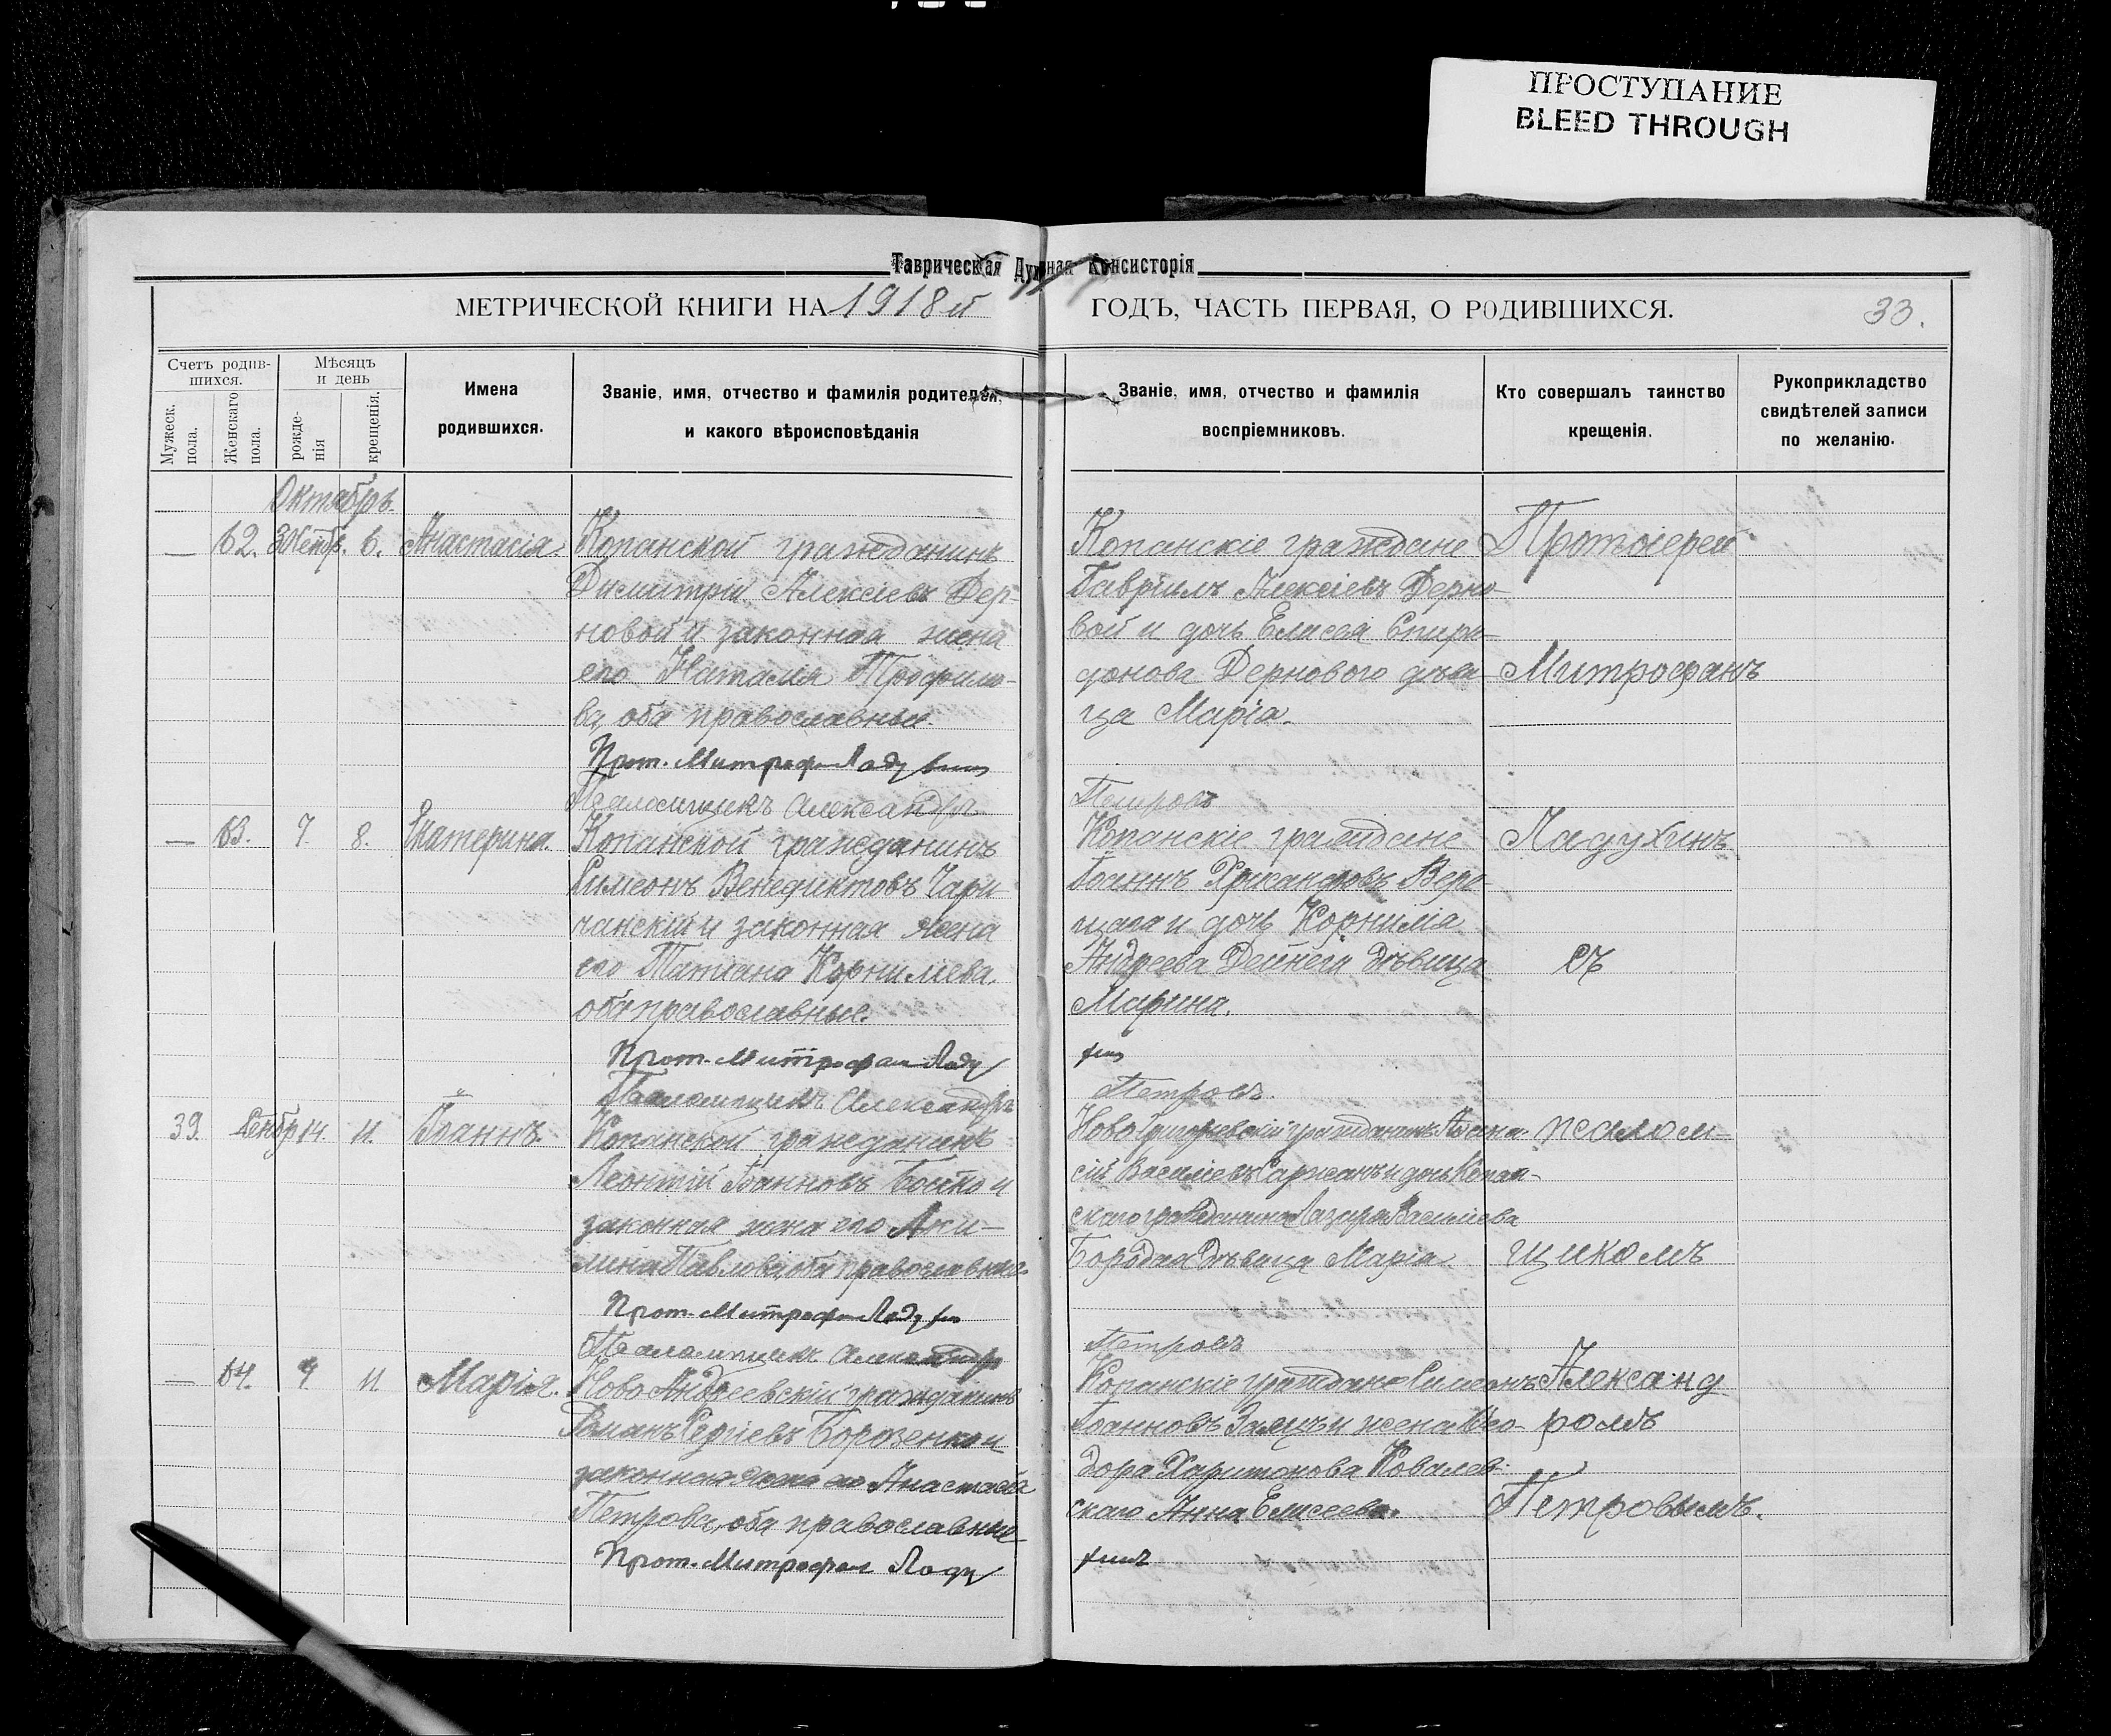 ПРОСТУПАНИЕ
BLEED THROUGH
Таврическая Духовная Консисторія
МЕТРИЧЕСКОЙ КНИГИ НА 1918й ГОДЪ, ЧАСТЬ ПЕРВАЯ, О РОДИВШИХСЯ. 33.
Счетъ родившихся.
Мужеск. пола.
Женскаго пола.
Мѣсяцъ и день
рожденія
крещенія.
Имена родившихся.
Званіе, имя, отчество и фамилія родителей, и какого вѣроисповѣданія
Званіе, имя, отчество и фамилія воспріемниковъ.
Кто совершалъ таинство крещенія.
Рукоприкладство свидѣтелей записи по желанію.
Октябрь.
— 62. 6. Анастасія. Копанской гражданинъ
Димитрій Алексіевъ Дер-
новой и законная жена
его Наталія Трофимо-
ва, оба православные.
Прот. Митрофан Ладухин
Псаломщикъ Александръ
Копанскіе граждане
Гавріилъ Алексіевъ Дерно-
вой и дочь Елисея Спири-
донова Дернового дѣви-
ца Марія.
Петровъ
— 63. 7. 8. Екатерина. Копанской гражданинъ
Симеонъ Венедиктовъ Чари-
чанскій и законная жена
его Татіана Корниліева,
оба православные.
Прот. Митрофан Ладу
Псаломщикъ Александръ
Копанскіе граждане
Іоаннъ Хрисанфовъ Вере-
щага и дочь Корнилія
Андреева Дейнеги дѣвица
Марина.
хин
Петровъ.
39. 14. 11. Іоаннъ. Копанской гражданинъ
Леонтій Іоанновъ Бойко и
законная жена его Аки-
лина Павлова, оба православные.
Прот. Митрофан Ладухин
Псаломщикъ Александр
Ново Григорьевскій гражданинъ
Василіевъ и дочь Копан-
скаго гражданина Лазаря Василіева
дѣвица Марія.
Петровъ
— 64. 11. Марія. Ново Андреевскій гражданинъ
Романъ Сергіевъ Борозенко и
законная жена его Анастасія
Петрова, оба православные
Прот. Митрофан Ладу
Копанскіе граждане Симеонъ
Іоанновъ Заяцъ и жена Ѳео-
дора Харитонова Ковалев-
скаго Анна Елисеева.
хинъ
Протоіерей
Митрофанъ
Ладухинъ
съ
псалом-
щикомъ
Александ
ромъ
Петровымъ.